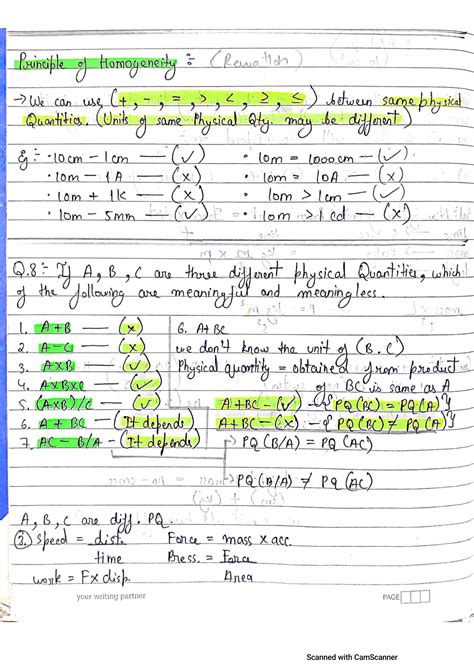 Principle of Homogeneity :-
→ We can use (+, -, =, >, <, ≥, ≤) between same physical
Quantities. (Units of same Physical Qty. may be different)
Eg :- • 10cm - 1cm — (✓) • 10m = 1000cm — (✓)
• 10m - 1A — (x) • 10m = 10A — (x)
• 10m + 1K — (x) • 10m > 1cm — (✓)
• 10m - 5mm — (✓) • 10m > 1cd — (x)
Q.8 :- If A, B, C are three different physical Quantities, which
of the following are meaningful and meaningless.
1. A+B — (x) 6. A+BC
2. A-C — (x) we don't know the unit of (B.C)
3. AxB — (✓) Physical quantity = obtained from product
4. AxBxC — (✓) of BC is same as A
5. (AxB)/C — (✓) A+BC-(✓) - {PQ(BC) = PQ(A)}
6. A+BC - (It depends) A+BC-(x) - {PQ(BC) ≠ PQ(A)}
7. AC - B/A - (It depends) → PQ(B/A) = PQ(AC)
→ PQ(B/A) ≠ PQ(AC)
A, B, C are diff. PQ.
Speed = dist. Force = mass x acc.
time Press. = Force
work = F x disp. Area
your writing partner PAGE
Scanned with CamScanner